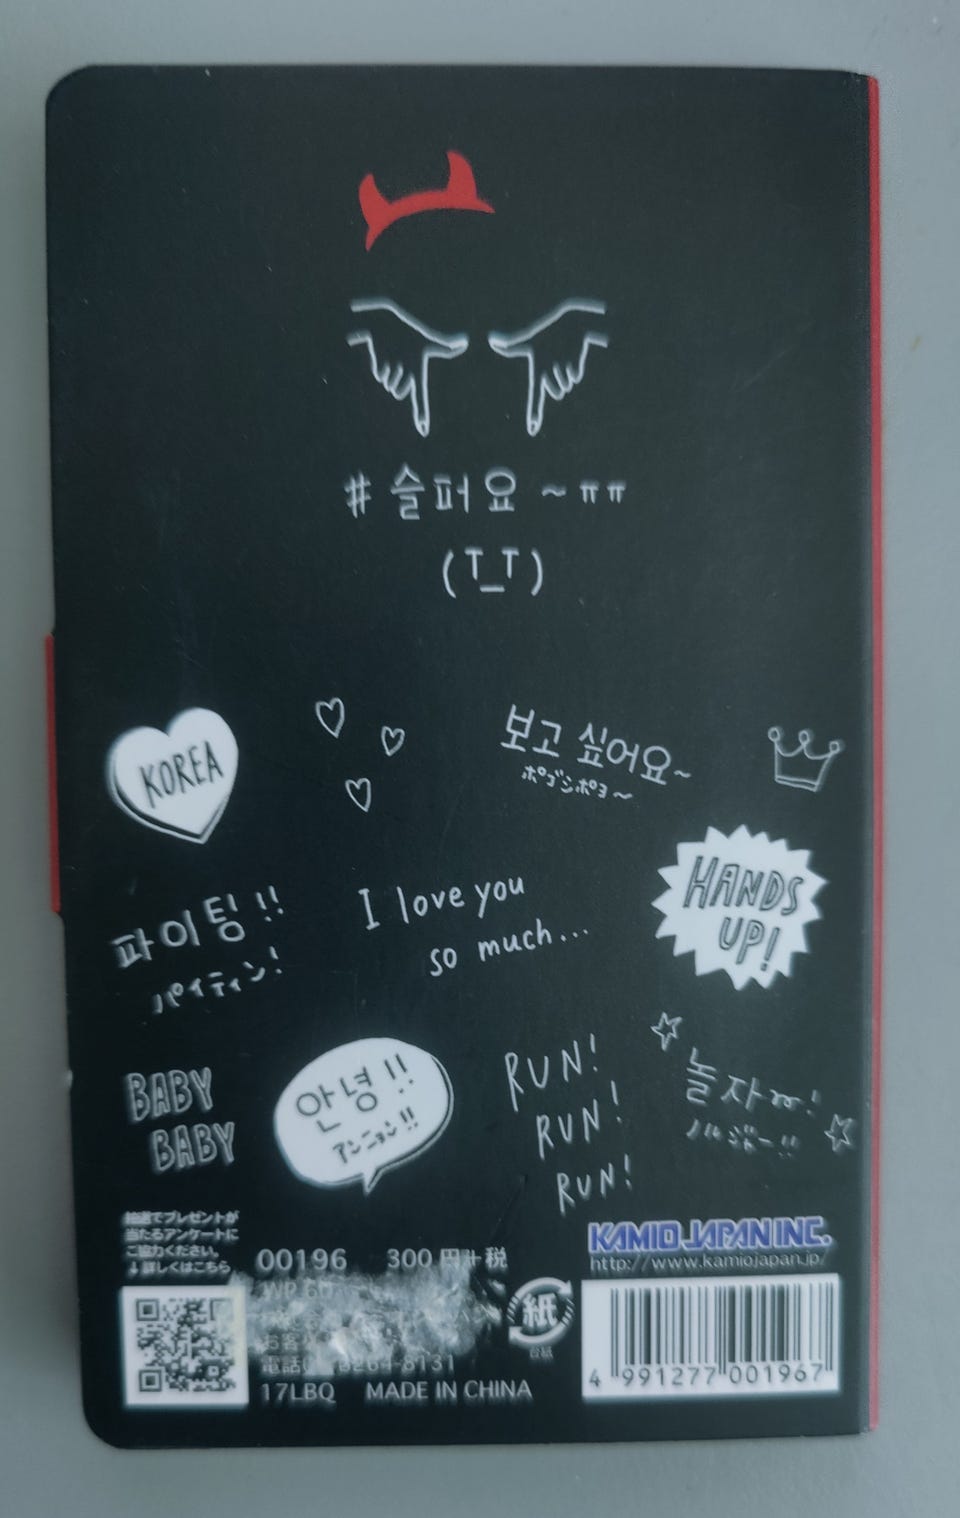 #슬퍼요~ㅠㅠ
(T_T)
KOREA
보고 싶어요~
ポゴシポヨ~
파이팅!!
パイティン!
I love you
so much...
HANDS
UP!
BABY
BABY
안녕!!
アンニョン!!
RUN!
RUN!
RUN!
놀자~!
ノルジャー!!
抽選でプレゼントが
当たるアンケートに
ご協力ください。
↓詳しくはこちら
00196 300円+税
WP
お客
電話 264-8131
17LBQ MADE IN CHINA
紙
台紙
KAMIO JAPAN INC.
http://www.kamiojapan.jp/
4 991277 001967